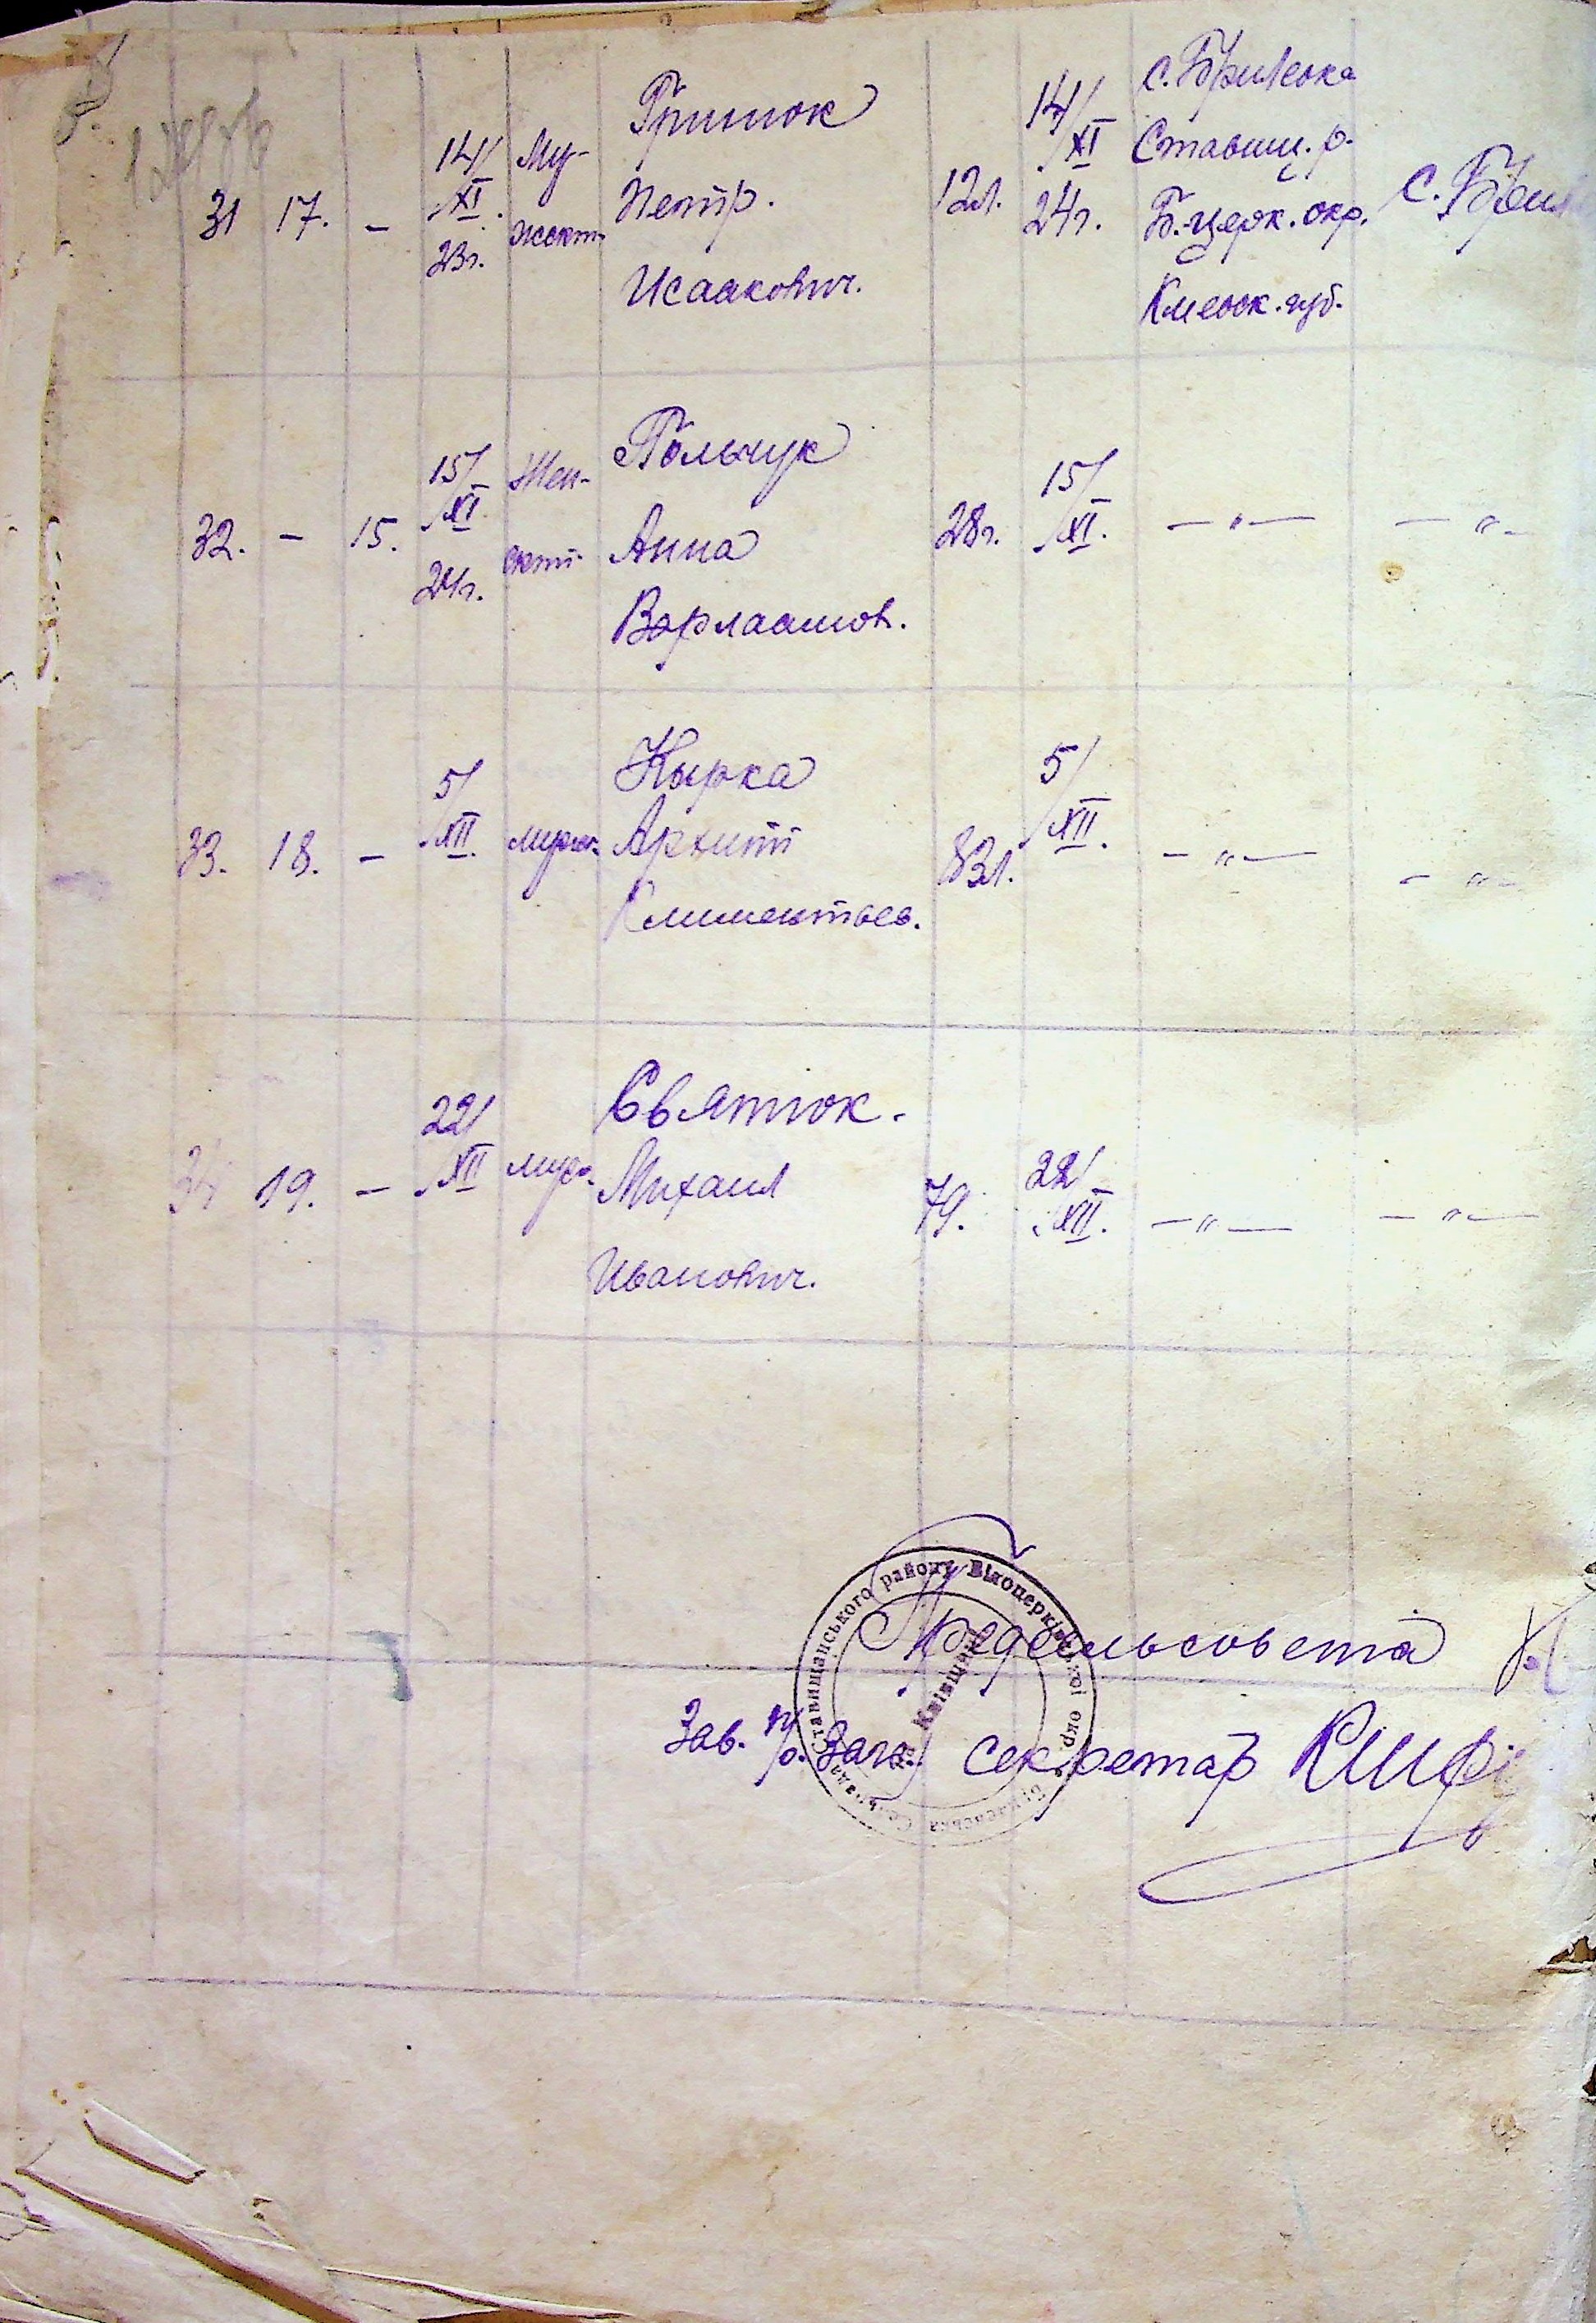 31 17. – 14/XI. 23г. Мужскти Гришок Петр. Исаакович. 12л. 14/XI 24г. с. Брилевка Ставищ. р. Б.-церк. окр. Киевск. губ.
32. – 15. 15/XI 24г. Женскти Польчук Анна Варлаамов. 28г. 15/XI. –〃– –〃–
33. 18. – 5/XII. муж. Кырка Архип Климентьев. 83л. 5/XII. –〃– –〃–
34 19. – 22/XII муж. Святюк. Михаил Иванович. 79. 22/XII. –〃– –〃–
Ставищанського району Білоцерківської окр.
Київщ
Предсельсовета
Зав.
секретар